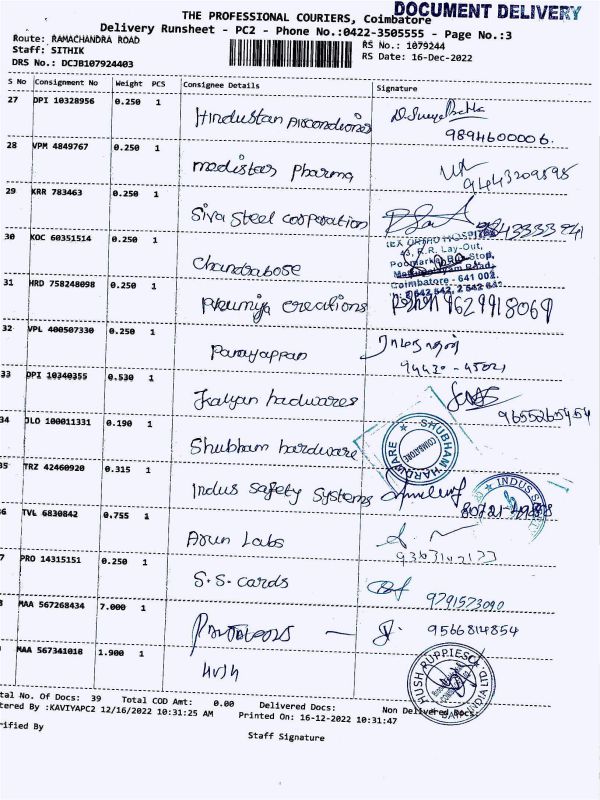 DOCUMENT DELIVERY
THE PROFESSIONAL COURIERS, Coimbatore
Delivery Runsheet - PC2 - Phone No.:0422-3505555 - Page No.:3
Route: RAMACHANDRA ROAD
RS No.: 1079244
Staff: SITHIK
RS Date: 16-Dec-2022
DRS No.: DCJB107924403
S No Consignment No Weight PCS Consignee Details Signature
27 DPI 10328956 0.250 1 Hindustan
9894600006.
28 VPM 4849767 0.250 1 medistar Pharma
9443209595
29 KRR 783463 0.250 1 Siva Steel corporation
30 KOC 60351514 0.250 1 Chandrabose
ORTHO HOSPITAL
43, R.R. Lay-Out,
Stop,
Road,
Coimbatore - 641 002.
31 HRD 758248098 0.250 1 creations 9629918069
32 VPL 400507330 0.250 1 Panayappan
94420-45021
33 DPI 10340355 0.530 1 Kalyan hadwares
9655265454
34 JLO 100011331 0.190 1 Shubham hardware
SHUBHAM HARDWARE
COIMBATORE
35 TRZ 42460920 0.315 1 Indus Safety Systems
INDUS
36 TVL 6830842 0.755 1 Arun Labs
7 PRO 14315151 0.250 1 S.S. cards
9791573090
MAA 567268434 7.000 1
9566814854
MAA 567341018 1.900 1 HUSH
HUSH PUPPIES
tal No. Of Docs: 39 Total COD Amt: 0.00 Delivered Docs: Non Delivered Docs:
tered By :KAVIYAPC2 12/16/2022 10:31:25 AM Printed On: 16-12-2022 10:31:47
rified By
Staff Signature